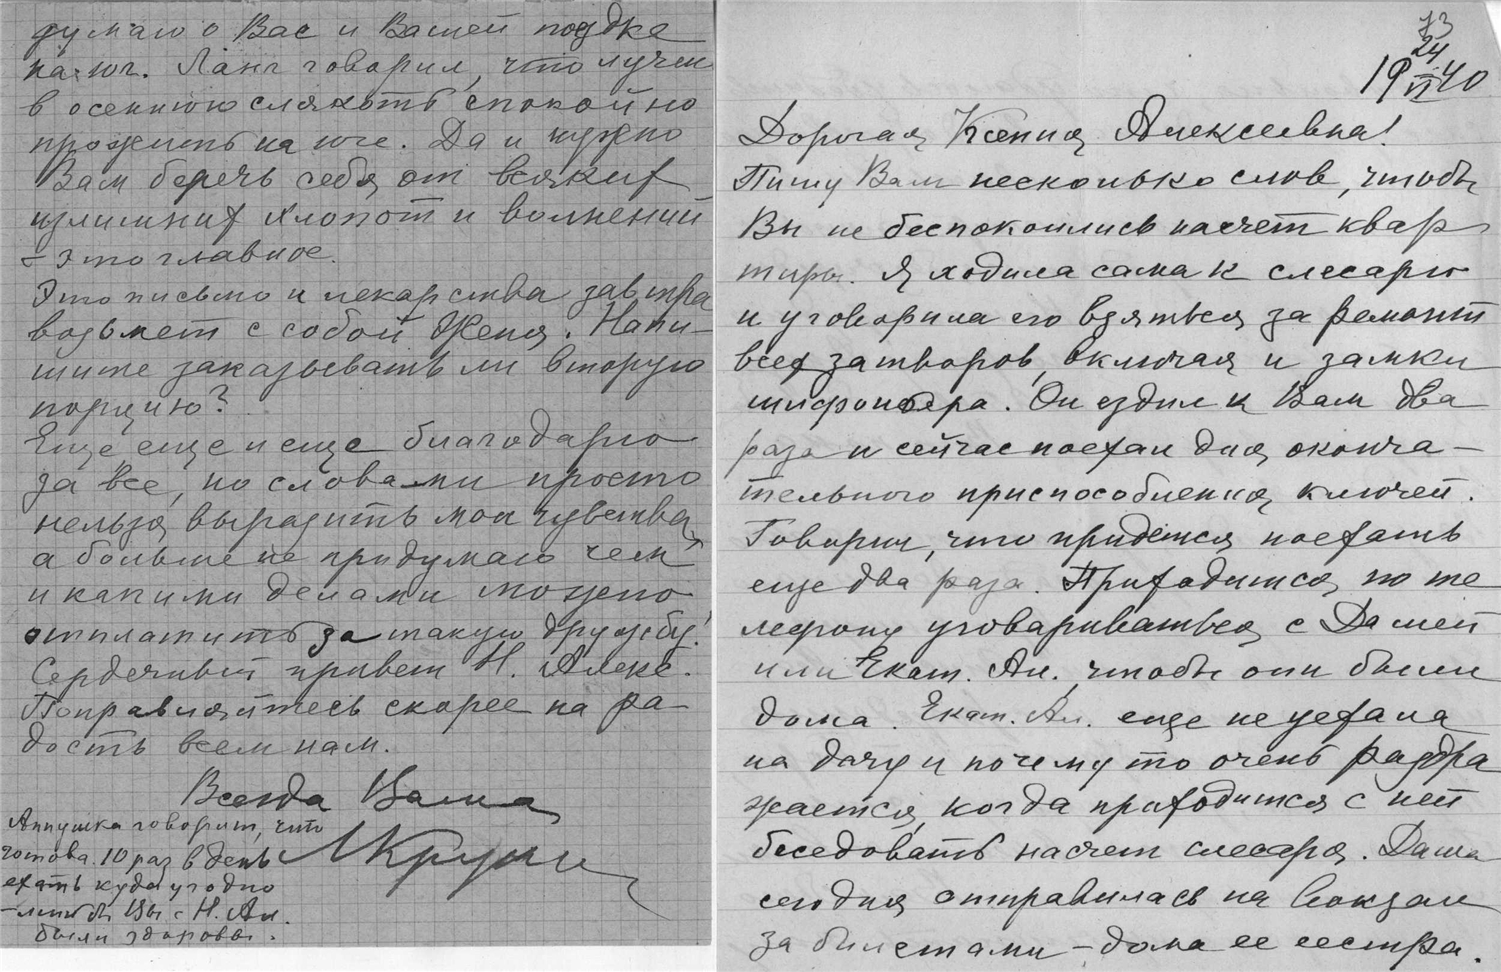 думаю о Вас и Вашей поездке
на юг. Ланг говорил, что лучше
в осеннюю слякоть спокойно
прожить на юге. Да и нужно
Вам беречь себя от всяких
излишних хлопот и волнений
– это главное.
Это письмо и лекарства завтра
возьмет с собой Женя. Напи–
шите заказывать ли вторую
порцию?
Еще, еще и еще благодарю
за все, но словами просто
нельзя выразить мои чувства,
а больше не придумаю чем
и какими делами можно
отплатить за такую дружбу!
Сердечный привет Н. Алекс.
Поправляйтесь скорее на ра
дость всем нам.
Всегда Ваша
Аннушка говорит, что
готова 10 раз в день
ехать куда угодно
– лишь бы Вы с Н. Ал.
были здоровы.
73
19 24/VI 40
Дорогая Ксения Алексеевна!
Пишу Вам несколько слов, чтобы
Вы не беспокоились насчет квар
тиры. Я ходила сама к слесарю
и уговорила его взяться за ремонт
всех затворов, включая и замки
шифоньера. Он ездил к Вам два
раза и сейчас поехал для оконча–
тельного приспособления ключей.
Говорил, что придется поехать
еще два раза. Приходится по те
лефону уговариваться с Дашей
или Екат. Ал., чтобы они были
дома. Екат. Ал. еще не уехала
на дачу и почему то очень раздра
жается, когда приходится с ней
беседовать насчет слесаря. Даша
сегодня отправилась на вокзал
за билетами – дома ее сестра.